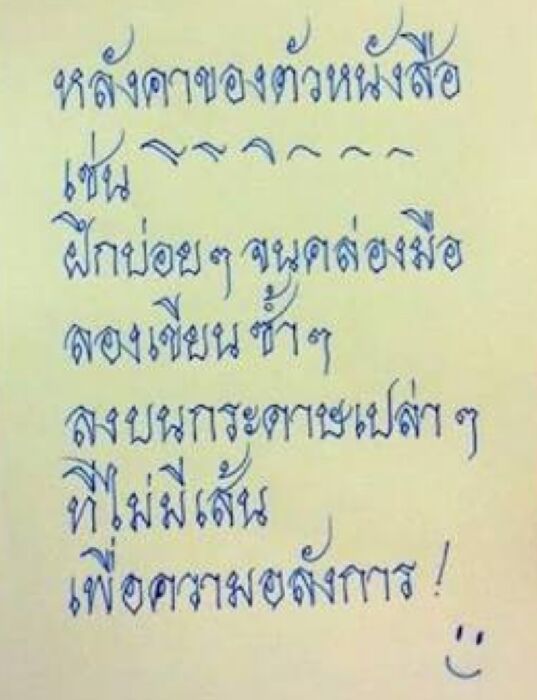 หลังคาของตัวหนังสือ
เช่น
ฝึกบ่อยๆ จนคล่องมือ
ลองเขียนซ้ำๆ
ลงบนกระดาษเปล่าๆ
ที่ไม่มีเส้น
เพื่อความอลังการ!